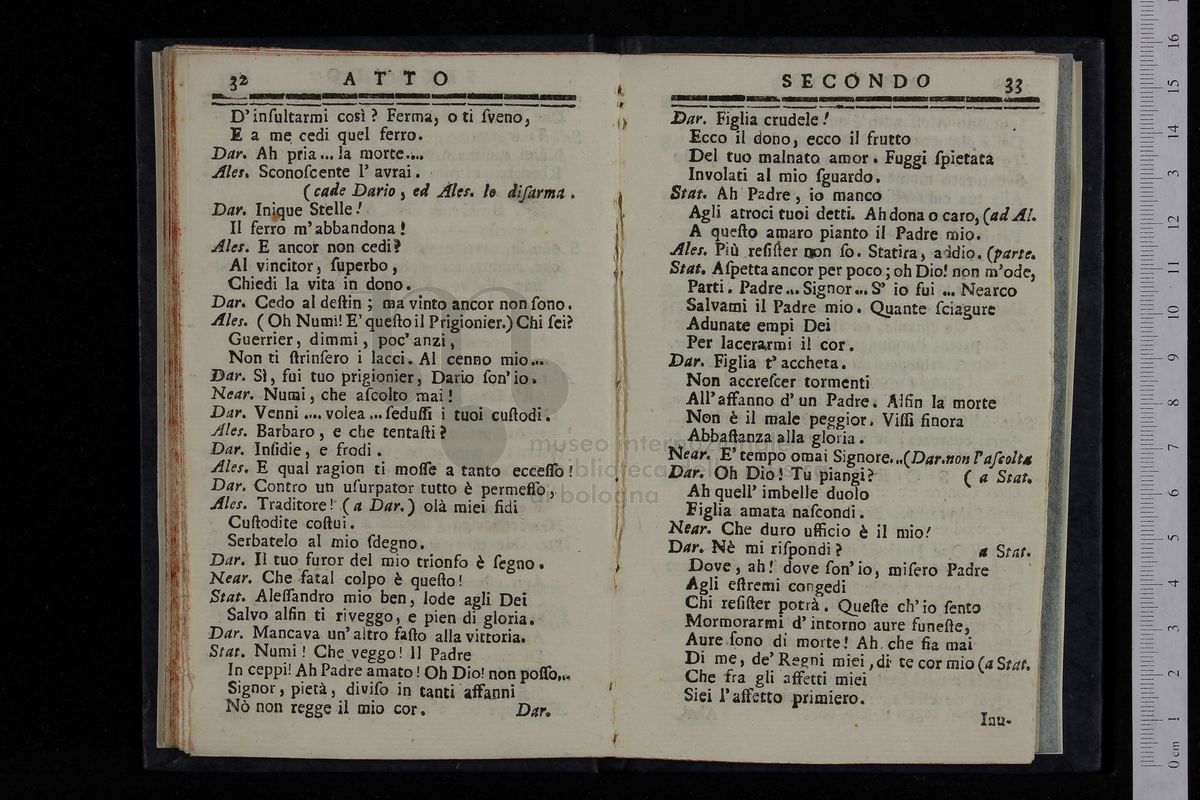 32 ATTO
D' inſultarmi così? Ferma, o ti ſveno,
E a me cedi quel ferro.
Dar. Ah pria... la morte....
Ales. Sconoſcente l' avrai.
(cade Dario, ed Ales. lo diſarma.
Dar. Inique Stelle!
Il ferro m' abbandona!
Ales. E ancor non cedi?
Al vincitor, ſuperbo,
Chiedi la vita in dono.
Dar. Cedo al deſtin; ma vinto ancor non ſono.
Ales. (Oh Numi! E' queſto il Prigionier.) Chi ſei?
Guerrier, dimmi, poc' anzi,
Non ti ſtrinſero i lacci. Al cenno mio...
Dar. Sì, fui tuo prigionier, Dario ſon' io.
Near. Numi, che aſcolto mai!
Dar. Venni .... volea ... ſeduſſi i tuoi cuſtodi.
Ales. Barbaro, e che tentaſti?
Dar. Inſidie, e frodi.
Ales. E qual ragion ti moſſe a tanto ecceſſo!
Dar. Contro un uſurpator tutto è permeſſo,
Ales. Traditore! (a Dar.) olà miei fidi
Cuſtodite coſtui.
Serbatelo al mio ſdegno.
Dar. Il tuo furor del mio trionfo è ſegno.
Near. Che fatal colpo è queſto!
Stat. Aleſſandro mio ben, lode agli Dei
Salvo alfin ti riveggo, e pien di gloria.
Dar. Mancava un' altro faſto alla vittoria.
Stat. Numi! Che veggo! Il Padre
In ceppi! Ah Padre amato! Oh Dio! non poſſo,..
Signor, pietà, diviſo in tanti affanni
Nò non regge il mio cor.
Dar.
SECONDO 33
Dar. Figlia crudele!
Ecco il dono, ecco il frutto
Del tuo malnato amor. Fuggi ſpietata
Involati al mio ſguardo.
Stat. Ah Padre, io manco
Agli atroci tuoi detti. Ah dona o caro, (ad Al.
A queſto amaro pianto il Padre mio.
Ales. Più reſiſter non ſo. Statira, addio. (parte.
Stat. Aſpetta ancor per poco; oh Dio! non m'ode,
Parti. Padre... Signor... S' io fui ... Nearco
Salvami il Padre mio. Quante ſciagure
Adunate empi Dei
Per lacerarmi il cor.
Dar. Figlia t' accheta.
Non accreſcer tormenti
All' affanno d' un Padre. Alfin la morte
Non è il male peggior. Viſſi finora
Abbaſtanza alla gloria.
Near. E' tempo omai Signore...(Dar. non l' aſcolta
Dar. Oh Dio! Tu piangi? ( a Stat.
Ah quell' imbelle duolo
Figlia amata naſcondi.
Near. Che duro ufficio è il mio!
Dar. Nè mi riſpondi? a Stat.
Dove, ah! dove ſon' io, miſero Padre
Agli eſtremi congedi
Chi reſiſter potrà. Queſte ch' io ſento
Mormorarmi d' intorno aure funeſte,
Aure ſono di morte! Ah che fia mai
Di me, de' Regni miei, di te cor mio (a Stat.
Che fra gli affetti miei
Siei l' affetto primiero.
Inu-
museo internazionale
biblioteca della musica
di bologna
0 cm 1 2 3 4 5 6 7 8 9 10 11 12 13 14 15 16